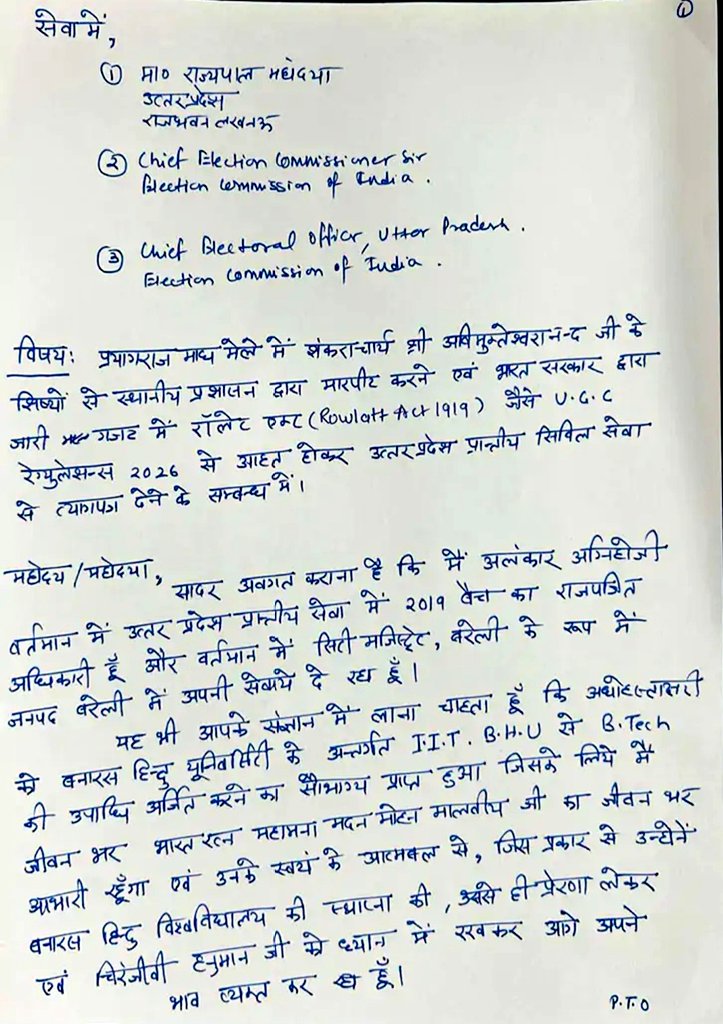 ①
सेवा में,
① मा० राज्यपाल महोदया
उत्तर प्रदेश
राजभवन लखनऊ
② Chief Election Commissioner Sir
Election Commission of India.
③ Chief Electoral Officer, Utter Pradesh.
Election Commission of India.
विषय: प्रयागराज माघ मेले में शंकराचार्य श्री अविमुक्तेश्वरानन्द जी के
शिष्यों से स्थानीय प्रशासन द्वारा मारपीट करने एवं भारत सरकार द्वारा
जारी गजट में रॉलेट एक्ट (Rowlatt Act 1919) जैसे U.G.C
रेग्युलेशन्स 2026 से आहत होकर उत्तर प्रदेश प्रान्तीय सिविल सेवा
से त्यागपत्र देने के सम्बन्ध में।
महोदय/महोदया,
सादर अवगत कराना है कि मैं अलंकार अग्निहोत्री
वर्तमान में उत्तर प्रदेश प्रान्तीय सेवा में 2019 बैच का राजपत्रित
अधिकारी हूँ और वर्तमान में सिटी मजिस्ट्रेट, बरेली के रूप में
जनपद बरेली में अपनी सेवायें दे रहा हूँ।
यह भी आपके संज्ञान में लाना चाहता हूँ कि अधोहस्ताक्षरी
को बनारस हिन्दु यूनिवर्सिटी के अन्तर्गत I.I.T. B.H.U से B.Tech
की उपाधि अर्जित करने का सौभाग्य प्राप्त हुआ जिसके लिये मैं
जीवन भर भारत रत्न महामना मदन मोहन मालवीय जी का जीवन भर
आभारी रहूँगा एवं उनके स्वयं के आत्मबल से, जिस प्रकार से उन्होनें
बनारस हिन्दु विश्वविद्यालय की स्थापना की, उससे ही प्रेरणा लेकर
एवं चिरंजीवी हनुमान जी को ध्यान में रखकर आगे अपने
भाव व्यक्त कर रहा हूँ।
P.T.O